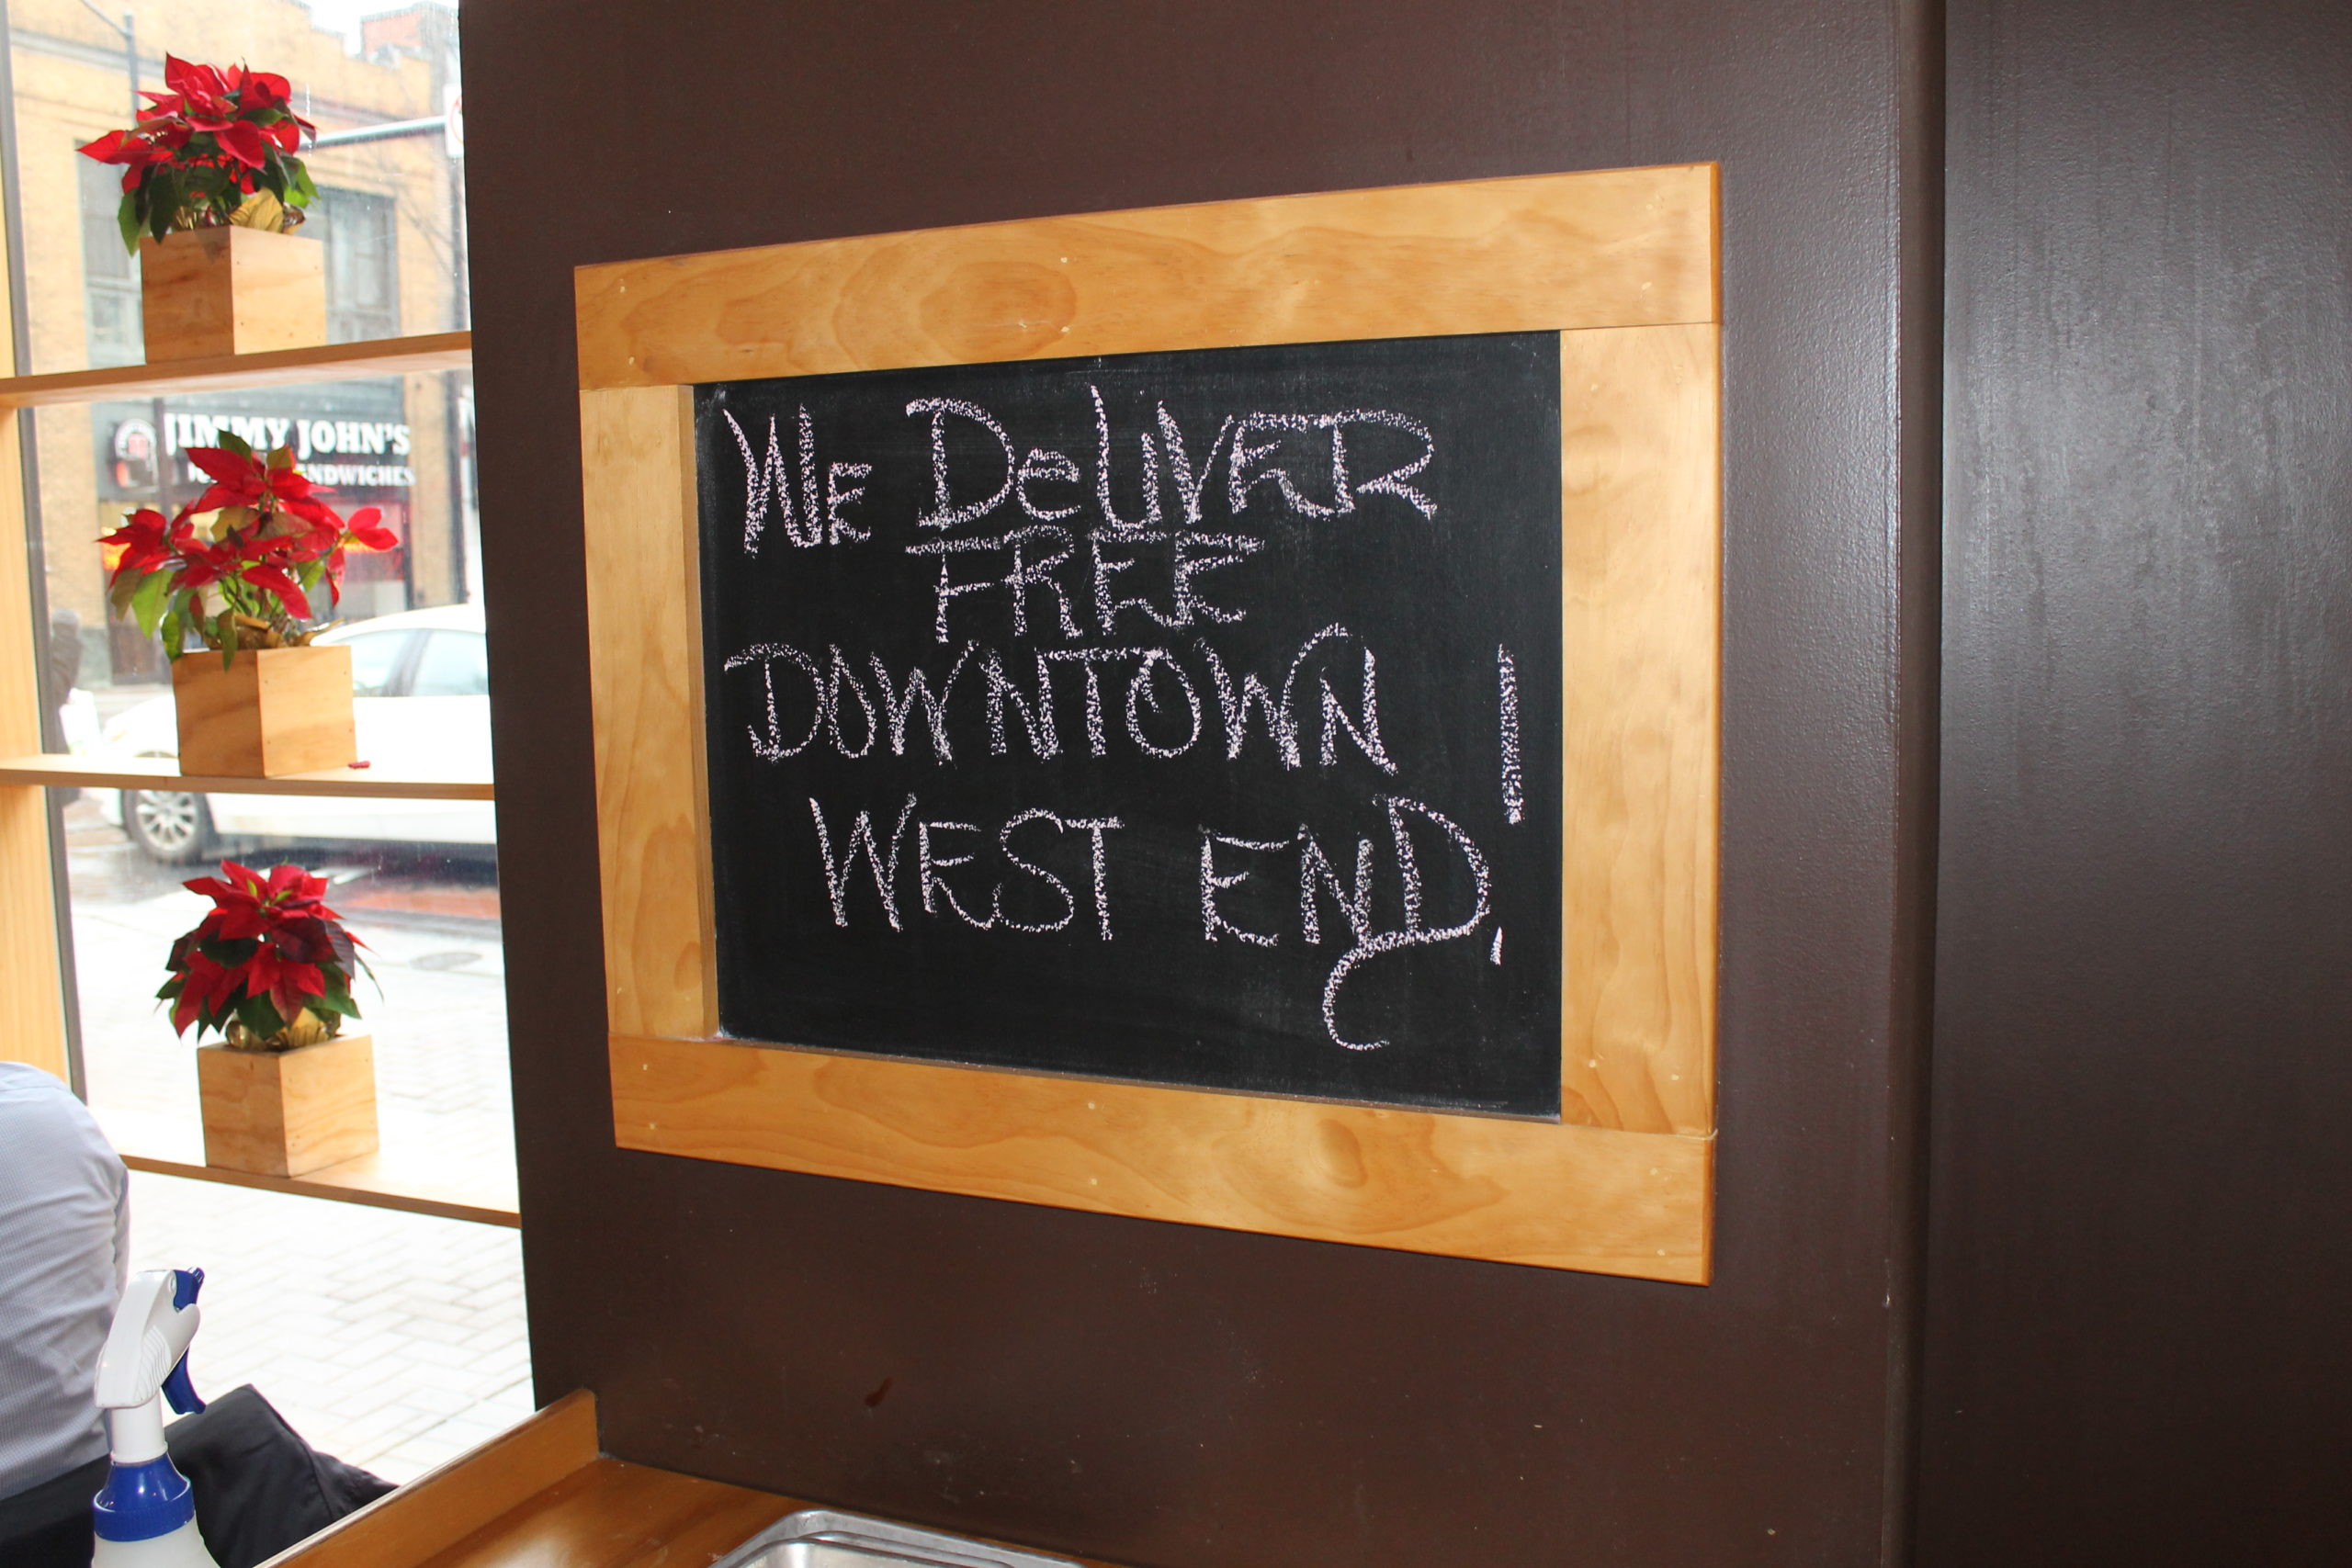 We DeLiVER
FREE
DOWNTOWN !
WEST END
JIMMY JOHN'S